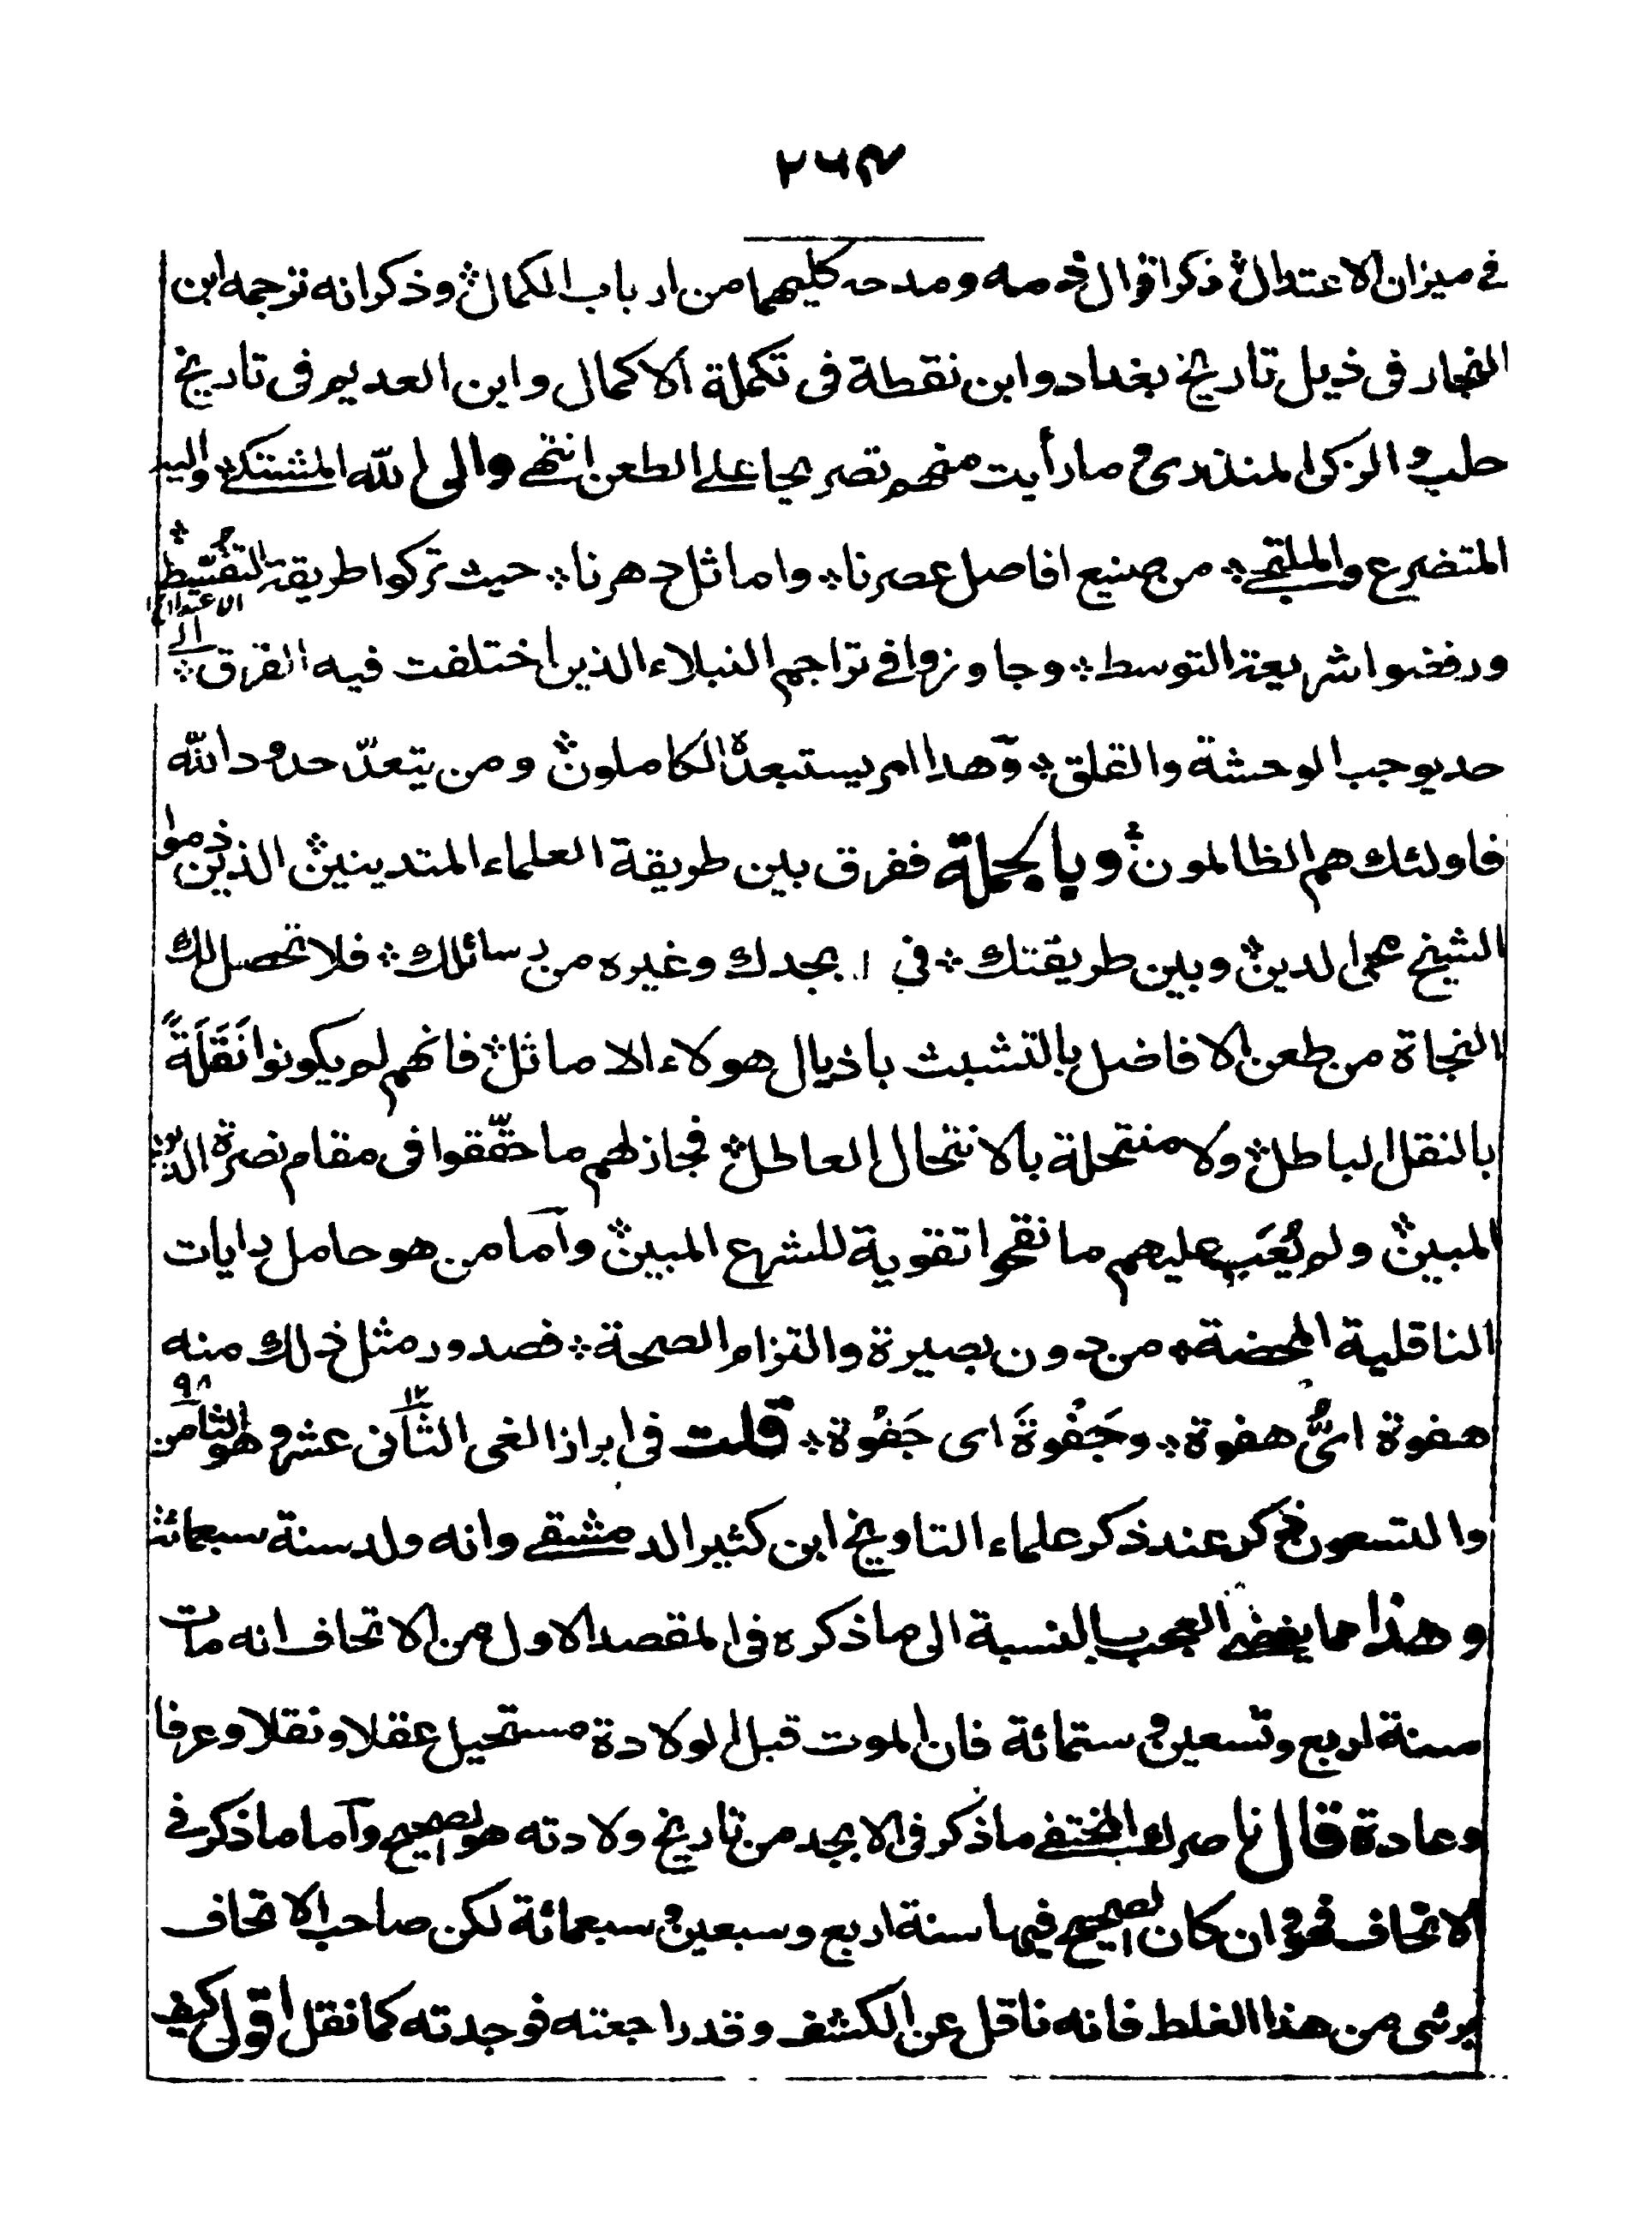 ٢٦٣
في ميزان الاعتدال ذكر اقوال ذمه ومدحه كليهما من ارباب الكمال وذكر انه ترجمه ابن
النجار فى ذيل تاريخ بغداد وابن نقطة فى تكملة الاكمال وابن العديم فى تاريخ
حلب والزكى المنذرى وما رأيت منهم تصريحا على الطعن انتهى والى الله المشتكى واليه
المتضرع والملتجى من صنيع افاضل عصرنا واماثل دهرنا حيث تركوا طريقة التقسط
ورفضوا شريعة التوسط وجاوزوا فى تراجم النبلاء الذين اختلفت فيه الفرق الى
حد يوجب الوحشة والقلق وهذا امر يستبعده الكاملون ومن يتعدّ حدود الله
فاولئك هم الظالمون وبالجملة ففرق بين طريقة العلماء المتدينين الذين ذموا
الشيخ محى الدين وبين طريقتك في ابجدك وغيره من رسائلك فلا تحصل لك
النجاة من طعن الافاضل بالتشبث باذيال هولاء الاماثل فانهم لم يكونوا نَقَلَةً
بالنقل الباطل ولا منتحلة بالانتحال العاطل فجاز لهم ما حقّقوا فى مقام نصرة الدين
المبين ولم يُعَب عليهم ما نقحوا تقوية للشرع المبين وآما من هو حامل رايات
الناقلية المحضة من دون بصيرة والتزام الصحة فصدور مثل ذلك منه
هفوة اىُّ هفوة وجَفْوةَ اى جَفْوة قلت فى ابراز الغى الثانى عشر ١٢ وهو الثامن ٩٨
والتسعون ذكر عند ذكر علماء التاريخ ابن كثير الدمشقى وانه ولد سنة سبعمائة
وهذا مما يفضى العجب بالنسبة الى ما ذكره فى المقصد الاول من الاتحاف انه مات
سنة اربع وتسعين وستمائة فان الموت قبل الولادة مستحيل عقلا ونقلا وعرفا
وعادة قال ناصرك المختفى ما ذكر فى الابجد من تاريخ ولادته هو الصحيح وآما ما ذكر فى
الاتحاف فهو وان كان الصحيح فيها سنة اربع وسبعين وسبعمائة لكن صاحب الاتحاف
برئى من هذا الغلط فانه ناقل عن الكشف وقد راجعته فوجدته كما نقل اقول كيف